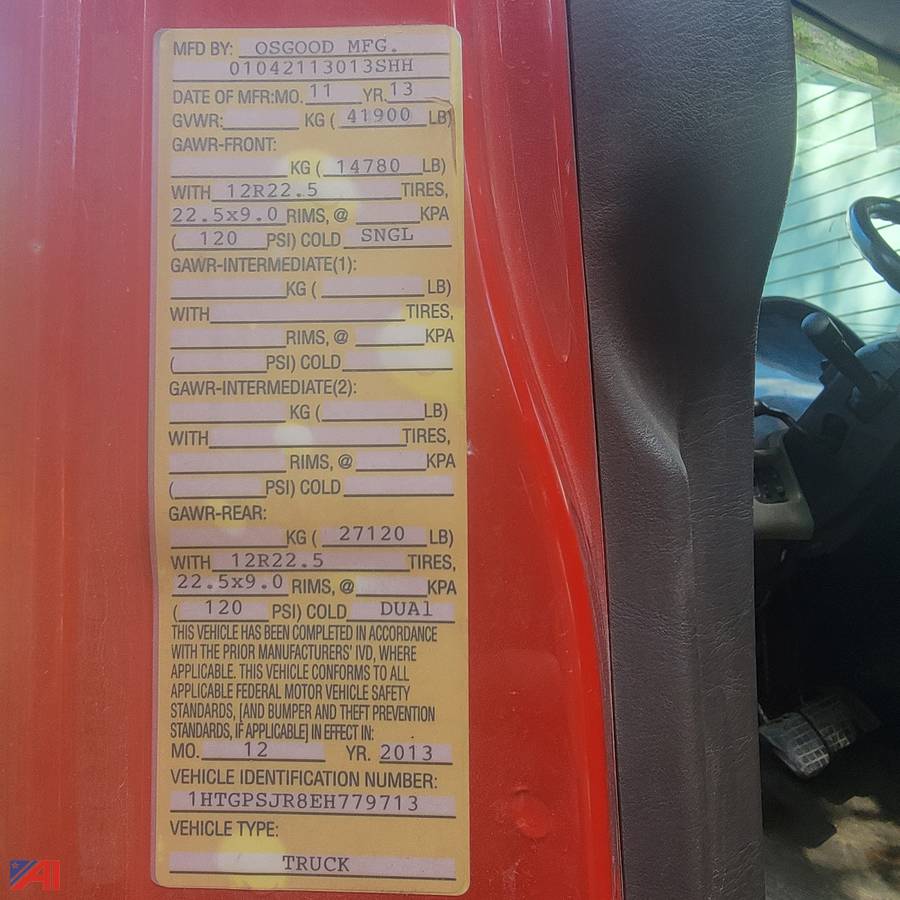 MFD BY: OSGOOD MFG.
01042113013SHH
DATE OF MFR:MO. 11 YR. 13
GVWR: KG ( 41900 LB)
GAWR-FRONT:
KG ( 14780 LB)
WITH 12R22.5 TIRES,
22.5x9.0 RIMS, @ KPA
( 120 PSI) COLD SNGL
GAWR-INTERMEDIATE(1):
KG ( LB)
WITH TIRES,
RIMS, @ KPA
( PSI) COLD
GAWR-INTERMEDIATE(2):
KG ( LB)
WITH TIRES,
RIMS, @ KPA
( PSI) COLD
GAWR-REAR:
KG ( 27120 LB)
WITH 12R22.5 TIRES,
22.5x9.0 RIMS, @ KPA
( 120 PSI) COLD DUAl
THIS VEHICLE HAS BEEN COMPLETED IN ACCORDANCE
WITH THE PRIOR MANUFACTURERS' IVD, WHERE
APPLICABLE. THIS VEHICLE CONFORMS TO ALL
APPLICABLE FEDERAL MOTOR VEHICLE SAFETY
STANDARDS, [AND BUMPER AND THEFT PREVENTION
STANDARDS, IF APPLICABLE] IN EFFECT IN:
MO. 12 YR. 2013
VEHICLE IDENTIFICATION NUMBER:
1HTGPSJR8EH779713
VEHICLE TYPE:
TRUCK
AI